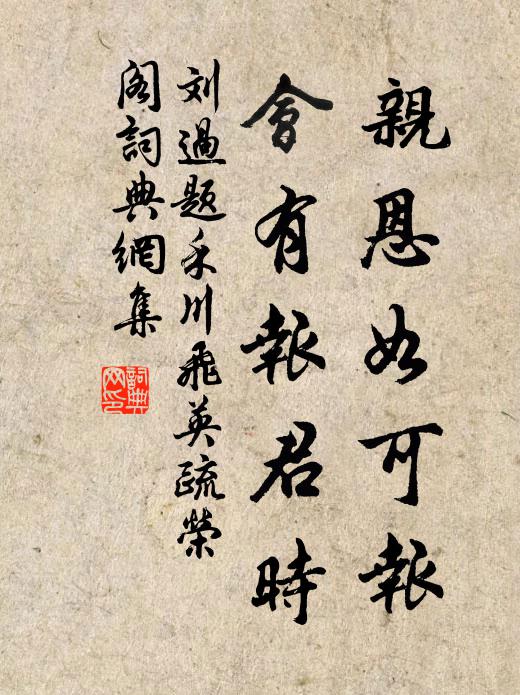 親恩如可報
會有報君時
刘過題禾川飛英疏榮
閣詞典網集
詞典网印